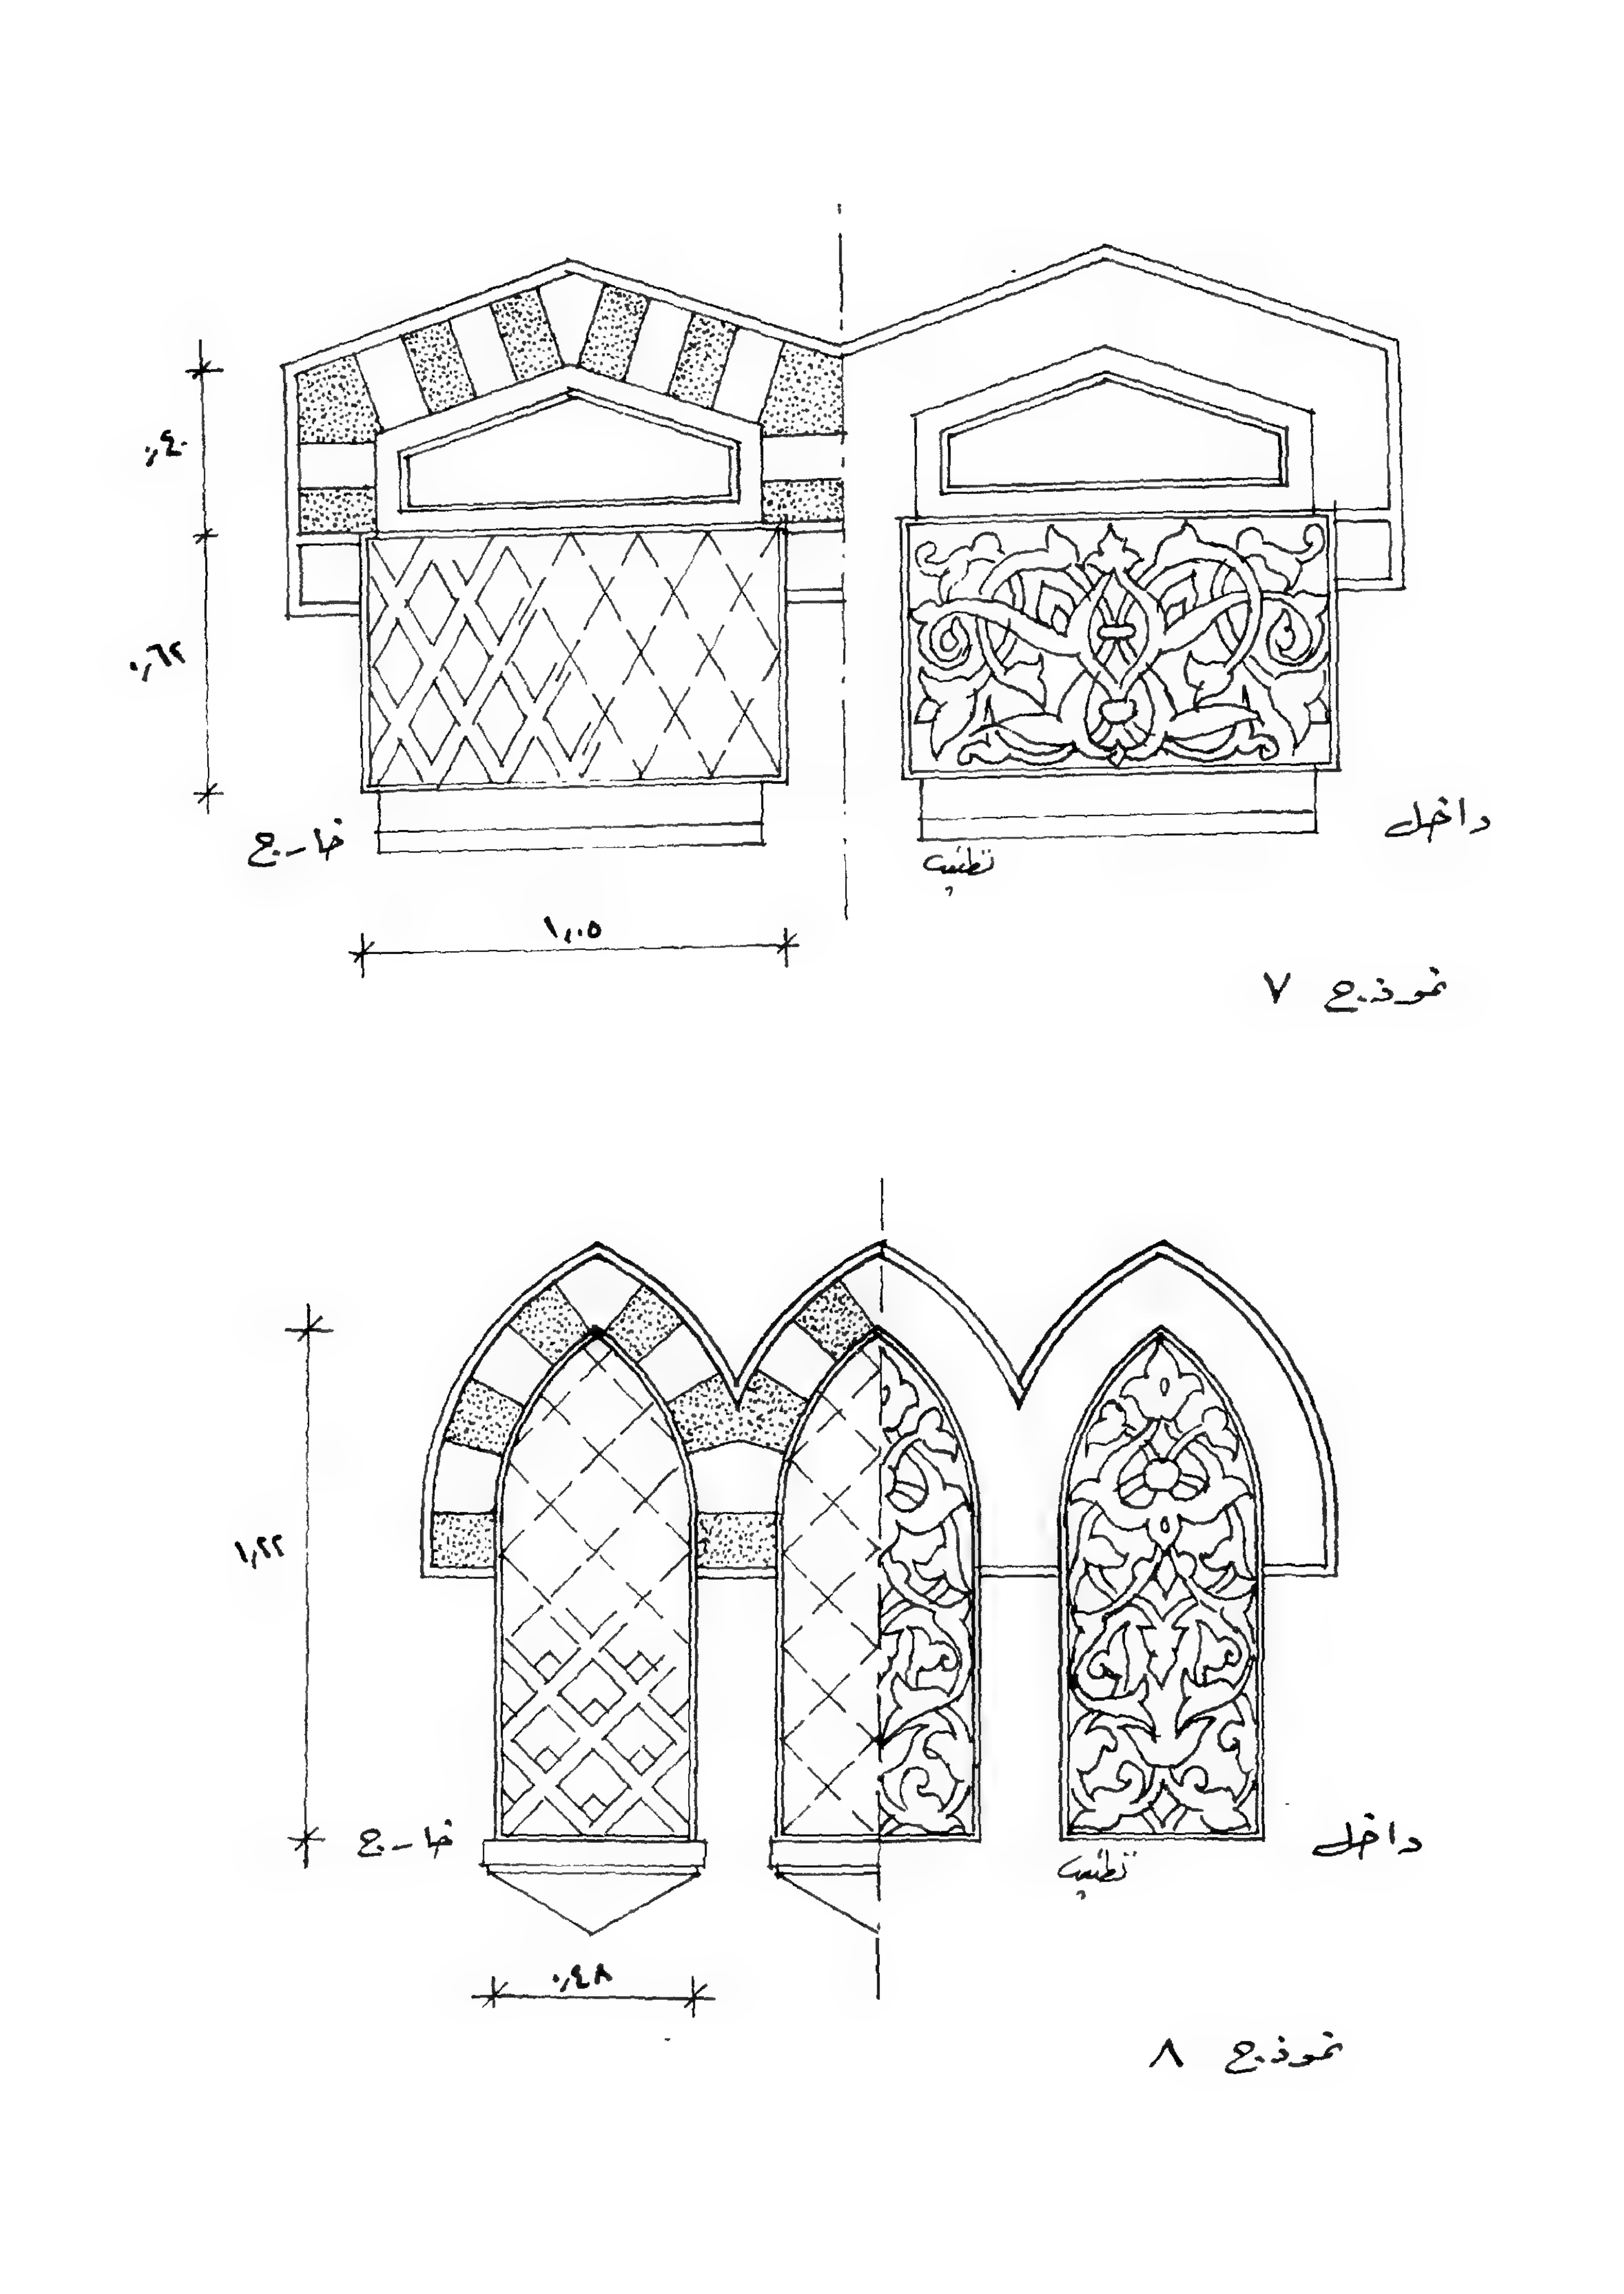 ٠,٤٠
٠,٦٢
خارج
داخل
١,٠٥
نموذج ٧
١,٢٢
خارج
داخل
٠,٤٨
نموذج ٨